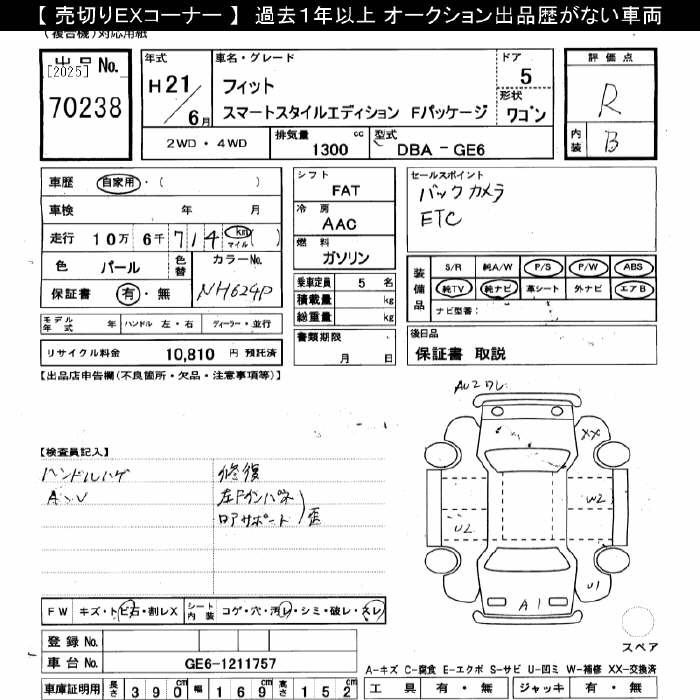 【 売切りEXコーナー 】 過去1年以上 オークション出品歴がない車両
(複合機)対応用紙
出品 No.
[2025]
70238
年式
H21/6月
車名・グレード
フィット
スマートスタイルエディション Fパッケージ
ドア
5
形状
ワゴン
評価点
R
内装
B
2WD・4WD
排気量 1300 cc
型式 DBA-GE6
車歴 自家用・( )
車検 年 月
走行 10万 6千 714 km マイル ( )
色 パール 色替
カラーNo. NH624P
保証書 有・無
シフト
FAT
冷房
AAC
燃料
ガソリン
乗車定員 5 名
積載量 kg
総重量 kg
セールスポイント
バックカメラ
ETC
装備品
S/R 純A/W P/S P/W ABS
純TV 純ナビ 革シート 外ナビ エアB
ナビ型番:
モデル年式 年 ハンドル 左・右 ディーラー・並行
リサイクル料金 10,810 円 預託済
書類期限
月 日
後日品
保証書 取説
【出品店申告欄(不良箇所・欠品・注意事項等)】
【検査員記入】
ハンドルハゲ
AW
修復
左Fインパネ
ロアサポート 歪
XX
W2
U2
U1
A1
FW キズ・トビ石・割レX シート内装 コゲ・穴・汚レ・シミ・破レ・スレ
登録 No.
車台 No. GE6-1211757
車庫証明用 長さ 390cm 幅 169cm 高さ 152cm
スペア
A-キズ C-腐食 E-エクボ S-サビ U-凹ミ W-補修 XX-交換済
工具 有・無 ジャッキ 有・無